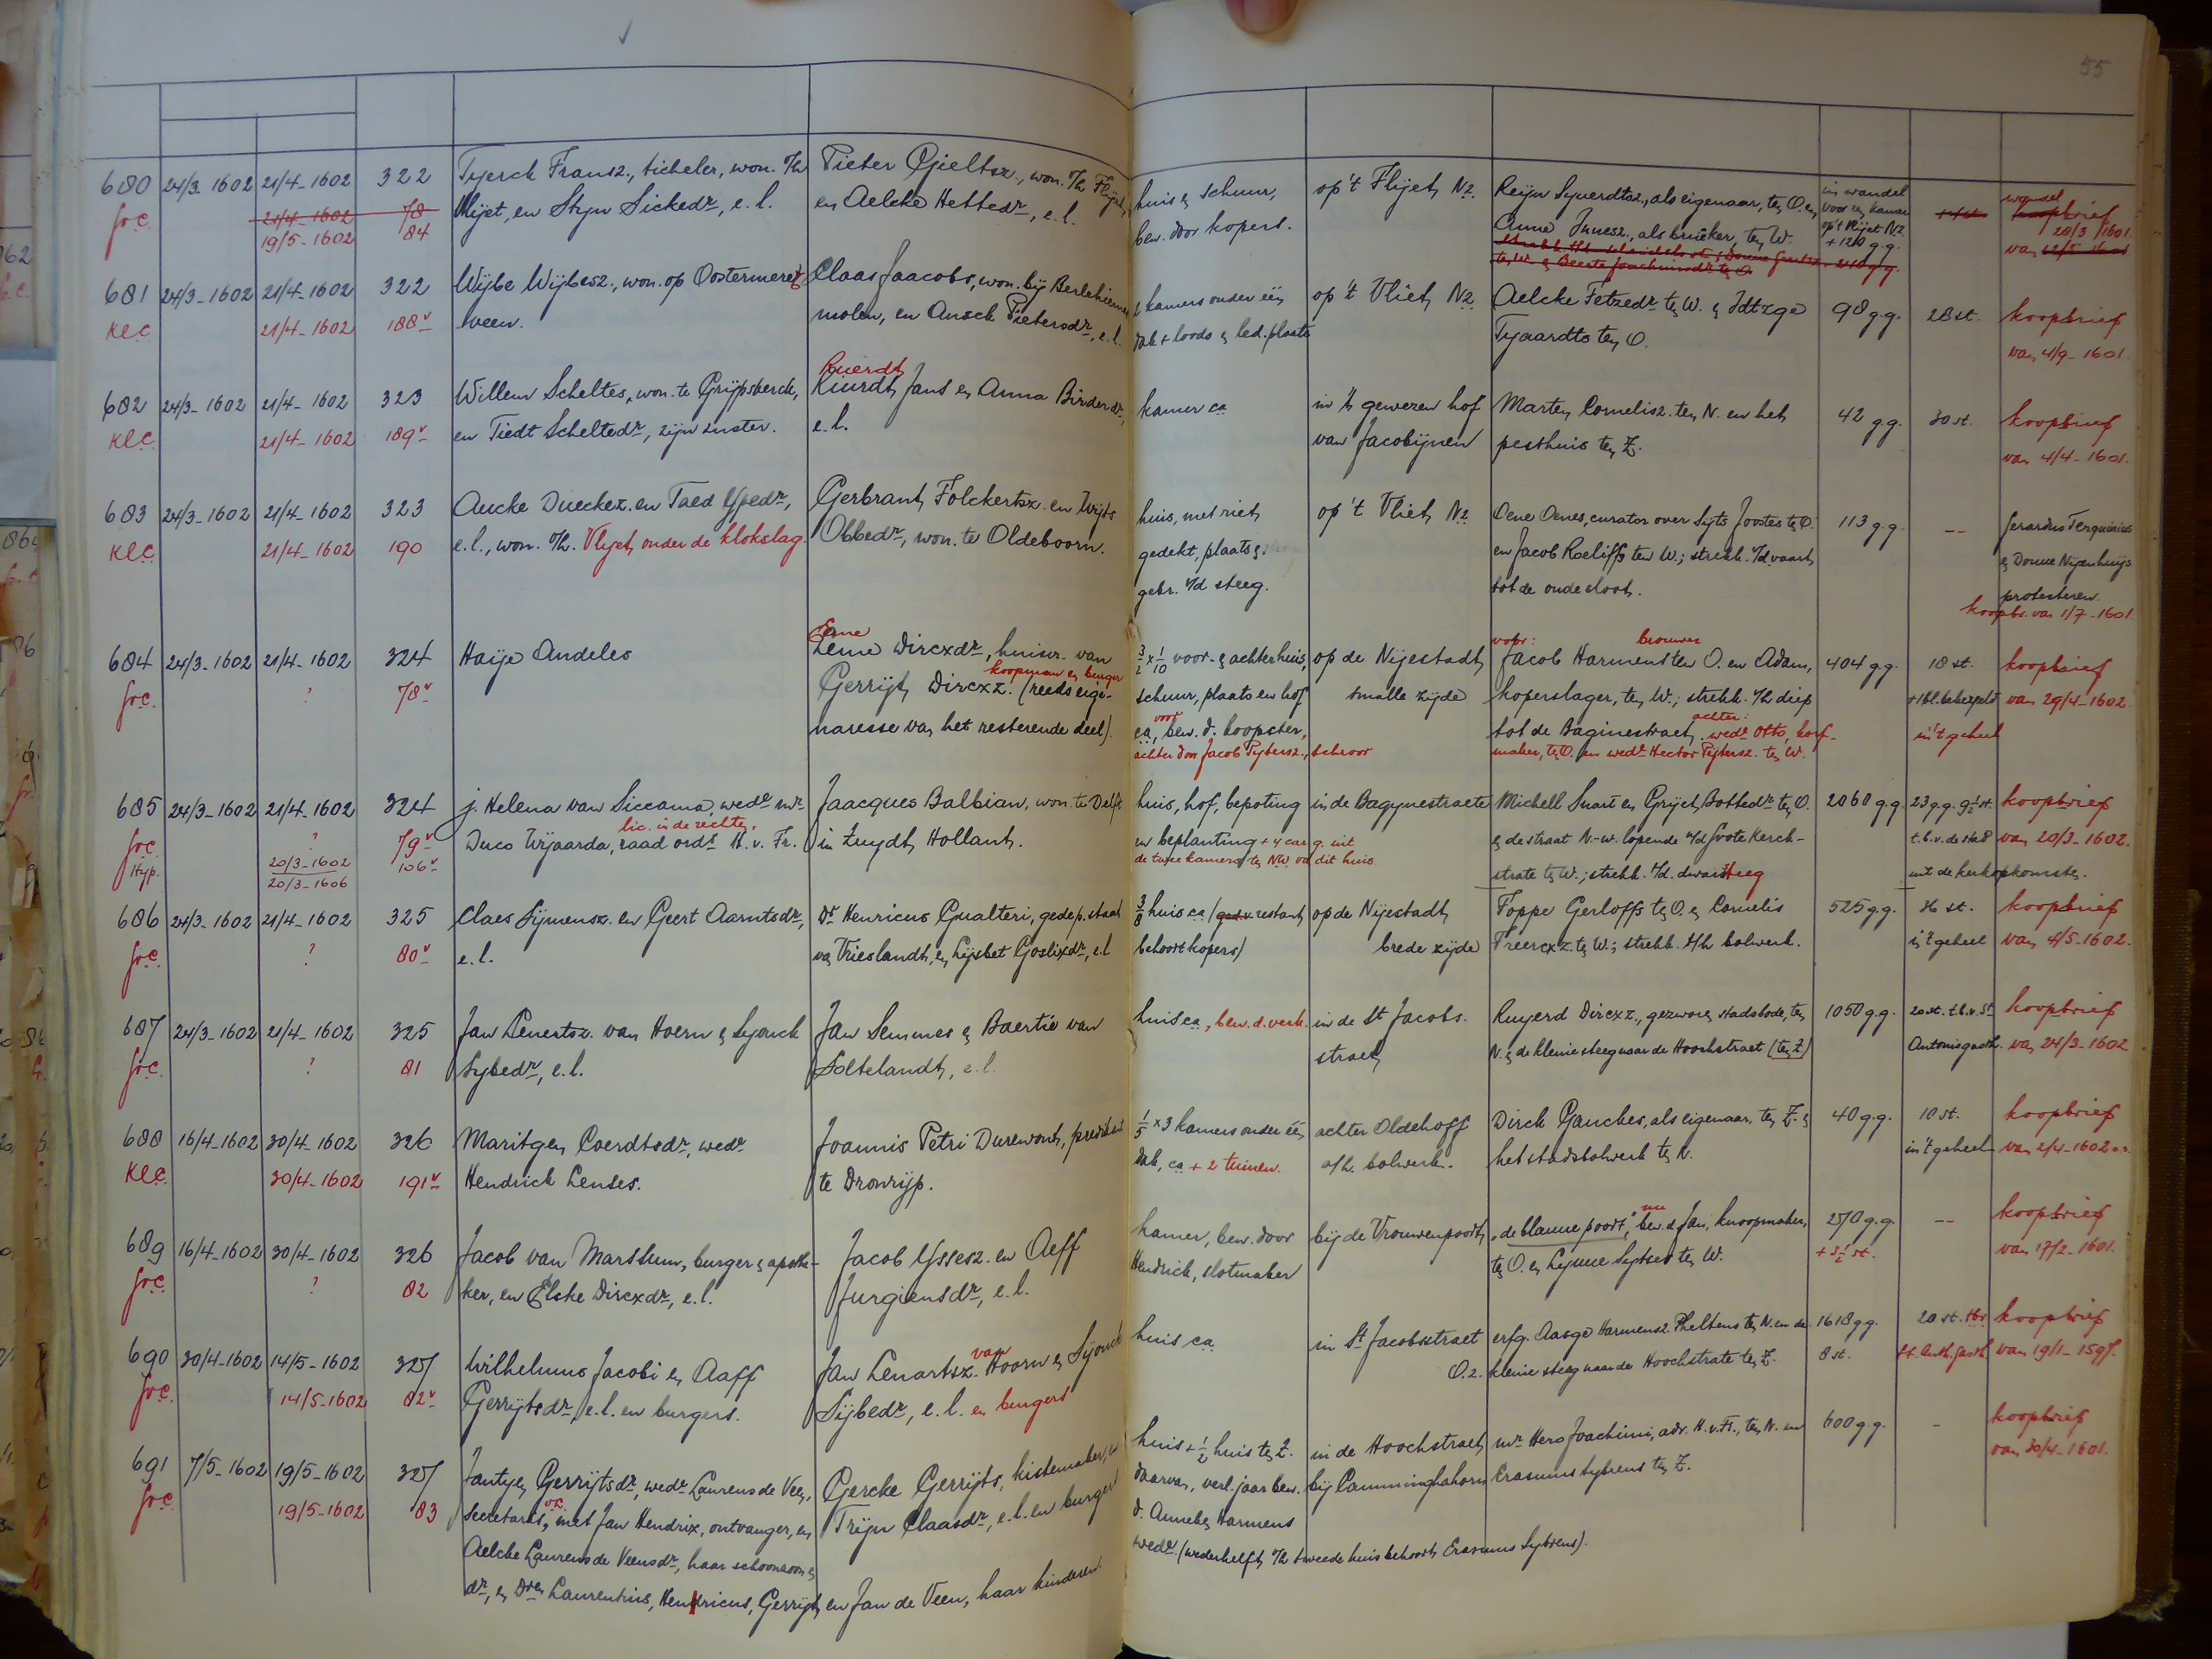 55
680 24/3-1602 21/4-1602 322 Tyerck Fransz., ticheler, won. Pieter Gieltsz., won. huis & schuur, op 't Flijet, Nz. Reijn Sjuerdtsz., als eigenaar, ten O. en in wandel wandel
gr.c. 21/4-1602 78 Vlijet, en Stijn Sickedr, e.l. en Aelcke Hettedr, e.l. bew. door kopers. Anne Innesz., als bruiker, ten W. voor een kamer brief
19/5-1602 84 op't Vlijet Nz 28/3 1601
+ 120 g.g. van
681 24/3-1602 21/4-1602 322 Wijbe Wijbesz., won. op Oostermeer Claas Jaacobs, won. bij Berlehiemer kamers onder één op 't Vliet, Nz Aelcke Fetzedr ten W. & Idtzge 98 g.g. 28 st. koopbrief
kl.c. 21/4-1602 188v veen. molen, en Ansck Pietersdr, e.l. dak + loods & led. plaats Tjaardts ten O. van 4/9-1601.
682 24/3-1602 21/4-1602 323 Willem Scheltes, won. te Grijpskerck, Ruerdt Jans en Anna Birdendr, kamer ca in 't gewezen hof Marten Cornelisz. ten N. en het 42 g.g. 30 st. koopbrief
kl.c. 21/4-1602 189v en Tiedt Scheltedr, zijn zuster. e.l. van Jacobijnen pesthuis ten Z. van 4/4-1601.
683 24/3-1602 21/4-1602 323 Aucke Dueckez. en Taed Ypedr, Gerbrant Folckertsz. en Wijts huis, met riet op 't Vliet Nz Oene Oenes, curator over Sijts Joostes ten O. 113 g.g. -- Gerardus Terquinius
kl.c. 21/4-1602 190 e.l., won. Vlijet, onder de klokslag. Obbedr, won. te Oldeboorn. gedekt, plaats & en Jacob Roeliffs ten W.; strekk. v/d vaart & Douue Nijenhuijs
gebr. v/d steeg. tot de oude sloot. protesteren.
koopbr. van 1/7-1601
684 24/3-1602 21/4-1602 324 Haije Andeles Eeme Dircxdr, huisvr. van voor- & achterhuis, op de Nijestadt, voor: Jacob Harmens brouwer ten O. en Adam, 404 g.g. 18 st. koopbrief
gr.c. ? 78v Gerrijt Dircxz. koopman en burger (reeds eige- schuur, plaats en hof smalle zijde koperslager, ten W.; strekk. v/h diep van 29/4-1602
naresse van het resterende deel). ca, voor bew. d. koopster, tot de Baginestraet, achter: wedr Otto, korf- in 't geheel
achter door Jacob Pytersz., schroor maker, ten O. en wedr Hector Pijtersz. ten W.
685 24/3-1602 21/4-1602 324 j. Helena van Siccama, wedr mr Jaacques Balbian, won. te Delft huis, hof, bepoting in de Bagynestraete Michell Snart en Grijet Bottedr ten O. 2060 g.g. 23 g.g. 9½ st. koopbrief
gr.c. ? 79v Duco Wijaarda, lic. in de rechten, raad ordr H. v. Fr. in Zuydt Hollant. en beplanting + 4 car. g. uit & de straat N-W. lopende v/d Grote Kerck- t.b.v. de stad van 20/3-1602.
Hyp. 20/3-1602 106v de twee kamers ten NW van dit huis. strate ten W.; strekk. t/d. dwarssteeg uit de kerkopkomsten.
20/3-1606
686 24/3-1602 21/4-1602 325 Claes Sijmensz. en Geert Aarntsdr, Dr Henricus Gualteri, gedep. staat 3/8 huis ca (restant op de Nijestadt, Foppe Gerloffs ten O. & Cornelis 525 g.g. 36 st. koopbrief
gr.c. ? 80v e.l. van Frieslandt, en Lijsbet Goslixdr, e.l. behoort kopers) brede zijde Freercxz. ten W.; strekk. t/h bolwerk. in 't geheel van 4/5-1602.
687 24/3-1602 21/4-1602 325 Jan Lenertsz. van Hoern & Sjouck Jan Semmes & Baertie van huis ca, bew. d. verk. in de St Jacobs- Ruyerd Dircxz., gezworen stadsbode, ten 1050 g.g. 20 st. t.b.v. St koopbrief
gr.c. ? 81 Sybedr, e.l. Soltelandt, e.l. straet N. & de kleine steeg naar de Hoochstraet (ten Z.) Antonisgasth. van 24/3-1602.
688 16/4-1602 30/4-1602 326 Maritgen Coerdtsdr, wedr Joannis Petri Durewont, predikant 1/5 x 3 kamers onder één achter Oldehoff Dirck Gauckes, als eigenaar, ten Z. & 40 g.g. 10 st. koopbrief
kl.c. 30/4-1602 191v Hendrick Lenses. te Dronrijp. dak, ca + 2 tuinen. a/h. bolwerk. het stadsbolwerk ten N. in 't geheel van 2/4-1602
689 16/4-1602 30/4-1602 326 Jacob van Marssum, burger & apothe- Jacob Yssesz. en Aeff kamer, bew. door bij de Vrouwenpoort „de blauue poort", nu bew. d. Jan, knoopmaker, 270 g.g. -- koopbrief
gr.c. ? 82 ker, en Elske Dircxdr, e.l. Jurgiensdr, e.l. Hendrick, slotmaker ten O. en Lyuue Sytses ten W. + 5½ st. van 17/2-1601.
690 30/4-1602 14/5-1602 327 Wilhelmus Jacobi en Aaff Jan Lenartsz. van Hoorn & Sjouck huis ca in St Jacobsstraet erfg. Aasge Harmensz. Pheltens ten N. en de 1618 g.g. 20 st. koopbrief
gr.c. 14/5-1602 82v Gerrijtsdr, e.l. en burgers. Sijbedr, e.l. en burgers O.z. kleine steeg naar de Hoochstrate ten Z. 8 st. St. Anth. gasth. van 19/1-1597.
691 7/5-1602 19/5-1602 327 Jantyen Gerrijtsdr, wedr Laurens de Veen, Gercke Gerrijts, kistemaker, en huis + ½ huis ten Z. in de Hoochstraet, mr Hero Joachimi, adv. H. v. Fr., ten N. en 600 g.g. - koopbrief
gr.c. 19/5-1602 83 secretaris, met Jan Hendrix, ontvanger, en Trijn Claasdr, e.l. en burgers daarvan, verl. jaar bew. bij Camminghahorn Erasmus Sybrens ten Z. van 30/4-1601.
Aelcke Laurens de Veensdr, haar schoonzoon & d. Anneken Harmens
dr, en Laurentius, Hendricus, Gerrijt, en Jan de Veen, haar kinderen. wedr. (wederhelft v/h tweede huis behoort Erasmus Sybrens).